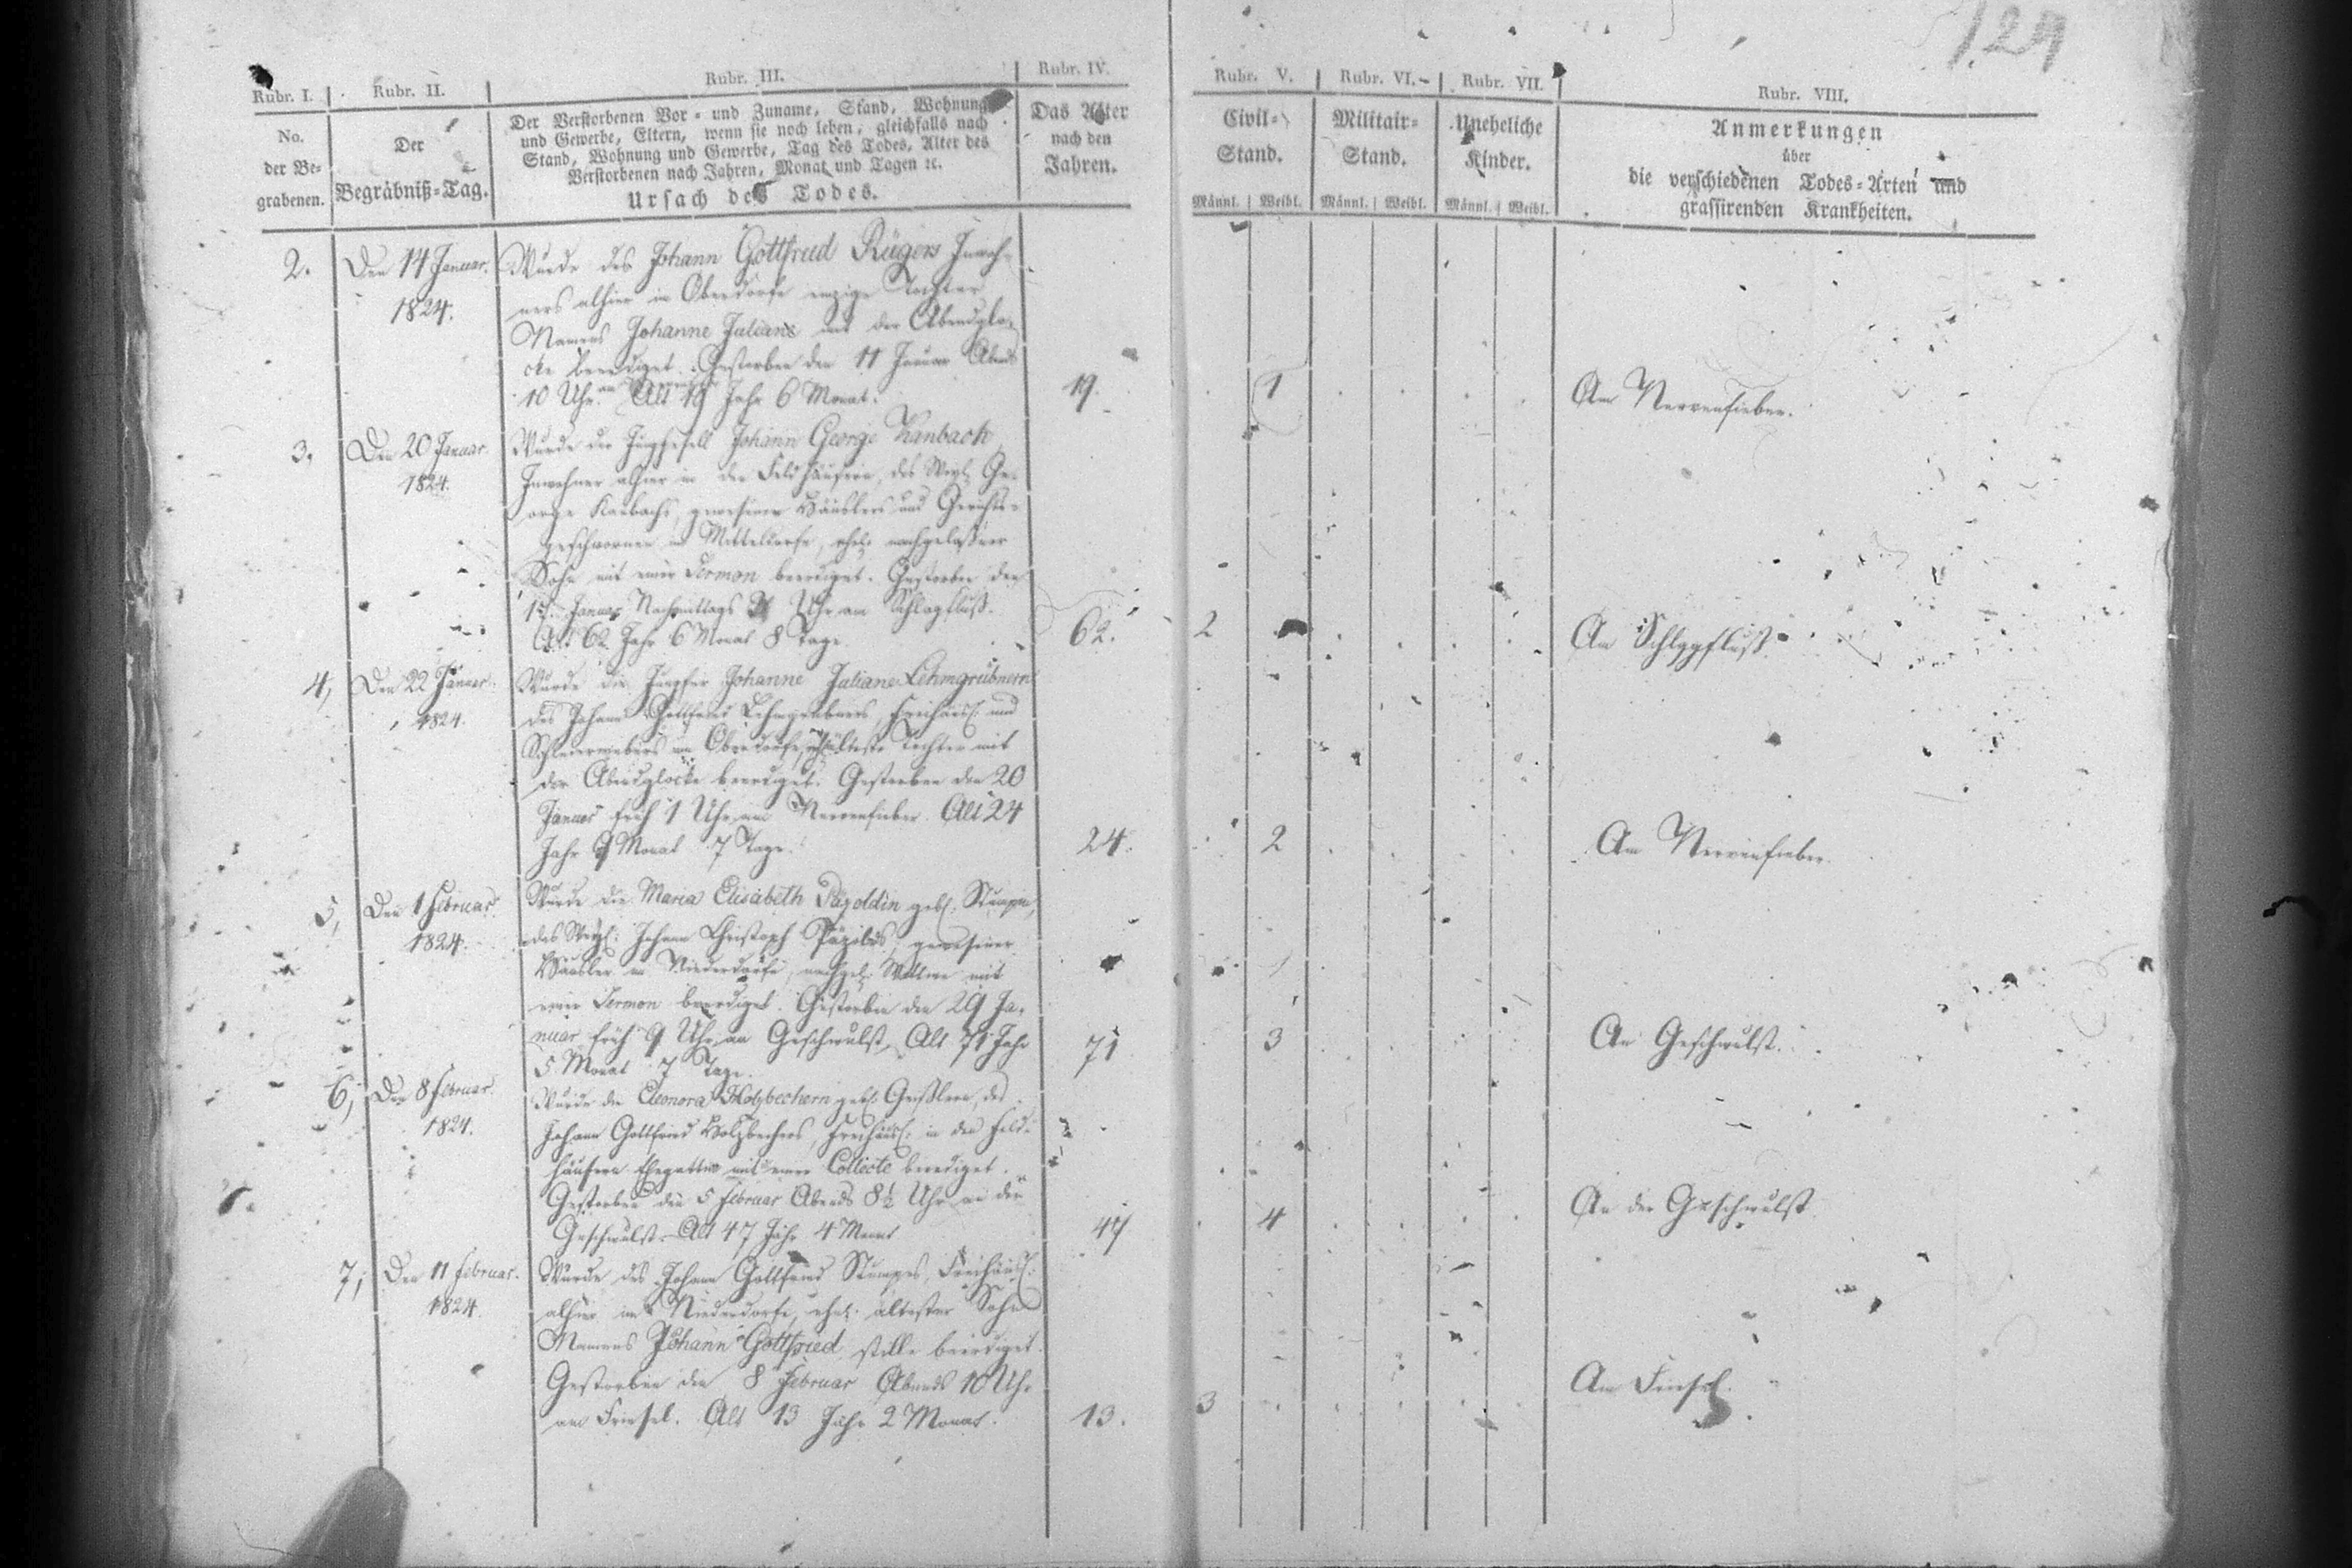 124
Rubr. I.
Rubr. II.
Rubr. III.
Rubr. IV.
Rubr. V.
Rubr. VI.
Rubr. VII.
Rubr. VIII.
No.
der Be-
grabenen.
Der
Begräbniß-Tag.
Der Verstorbenen Vor- und Zuname, Stand, Wohnung
und Gewerbe, Eltern, wenn sie noch leben, gleichfalls nach
Stand, Wohnung und Gewerbe, Tag des Todes, Alter des
Verstorbenen nach Jahren, Monat und Tagen ꝛc.
Ursach des Todes.
Das Alter
nach den
Jahren.
Civil-
Stand.
Männl. Weibl.
Militair-
Stand.
Männl. Weibl.
Uneheliche
Kinder.
Männl. Weibl.
Anmerkungen
über
die verschiedenen Todes-Arten und
grassirenden Krankheiten.
2. Den 14 Januar. Wurde des Johann Gottfried Rügers Inwoh-
1824. ners alhier in Oberdorfe einzige Tochter
Namens Johanne Juliane mit der Abendglo-
cke beerdiget. Gestorben den 11 Januar Abends
10 Uhr Alt 19 Jahr 6 Monat. 19. 1 Am Nervenfieber.
3. Den 20 Januar Wurde der Junggesell Johann George Kanbach
1824. Inwohner alhier in den Feldhäusern, des Weyl. Ge-
orge Kanbachs, gewesener Häuslers und Gerichts-
geschwornen in Mitteldorfe, ehel. nachgelaßner
Sohn mit einer Sermon beerdiget. Gestorben den
Januar Nachmittags Uhr am Schlagfluß.
Alt 62 Jahr 6 Monat 8 Tage. 62. 2 Am Schlagfluß.
4, Den 22 Januar Wurde die Jungfer Johanne Juliane Lehmgrübnern
1824. des Johann Gottfried Lehmgrübners, Freihäusl. und
Schleierwebers im Oberdorfe, älteste Tochter mit
der Abendglocke beerdiget. Gestorben den 20
Januar früh 1 Uhr am Nervenfieber. Alt 24
Jahr 9 Monat 7 Tage. 24. 2 Am Nervenfieber.
5, Den 1 Februar. Wurde die Maria Elisabeth geb.
1824. des Weyl. Johann Christoph gewesener
Häusler in Niederdorfe, nachgel. Wittwe mit
einer Sermon beerdiget. Gestorben den 29 Ja-
nuar früh 9 Uhr an Geschwulst, Alt 71 Jahr 71 3 An Geschwulst.
5 Monat 7 Tage.
6, Den 8 Februar. Wurde die Eleonora Holzbechern geb. des
1824. Johann Gottfried Holzbechers, Freihäusl. in den Feld-
häusern Ehegattin mit einer Collecte beerdiget.
Gestorben den 5 Februar Abends 8½ Uhr an der
Geschwulst. Alt 47 Jahr 4 Monat 47 4 An der Geschwulst.
7, Den 11 Februar. Wurde des Johann Gottfried Stumpes, Freihäusl.
1824. alhier im Niederdorfe, ehel. ältester Sohn
Namens Johann Gottfried stille beerdiget.
Gestorben den 8 Februar Abends 10 Uhr
am Friesel. Alt 13 Jahr 2 Monat. 13. 3 Am Friesel.